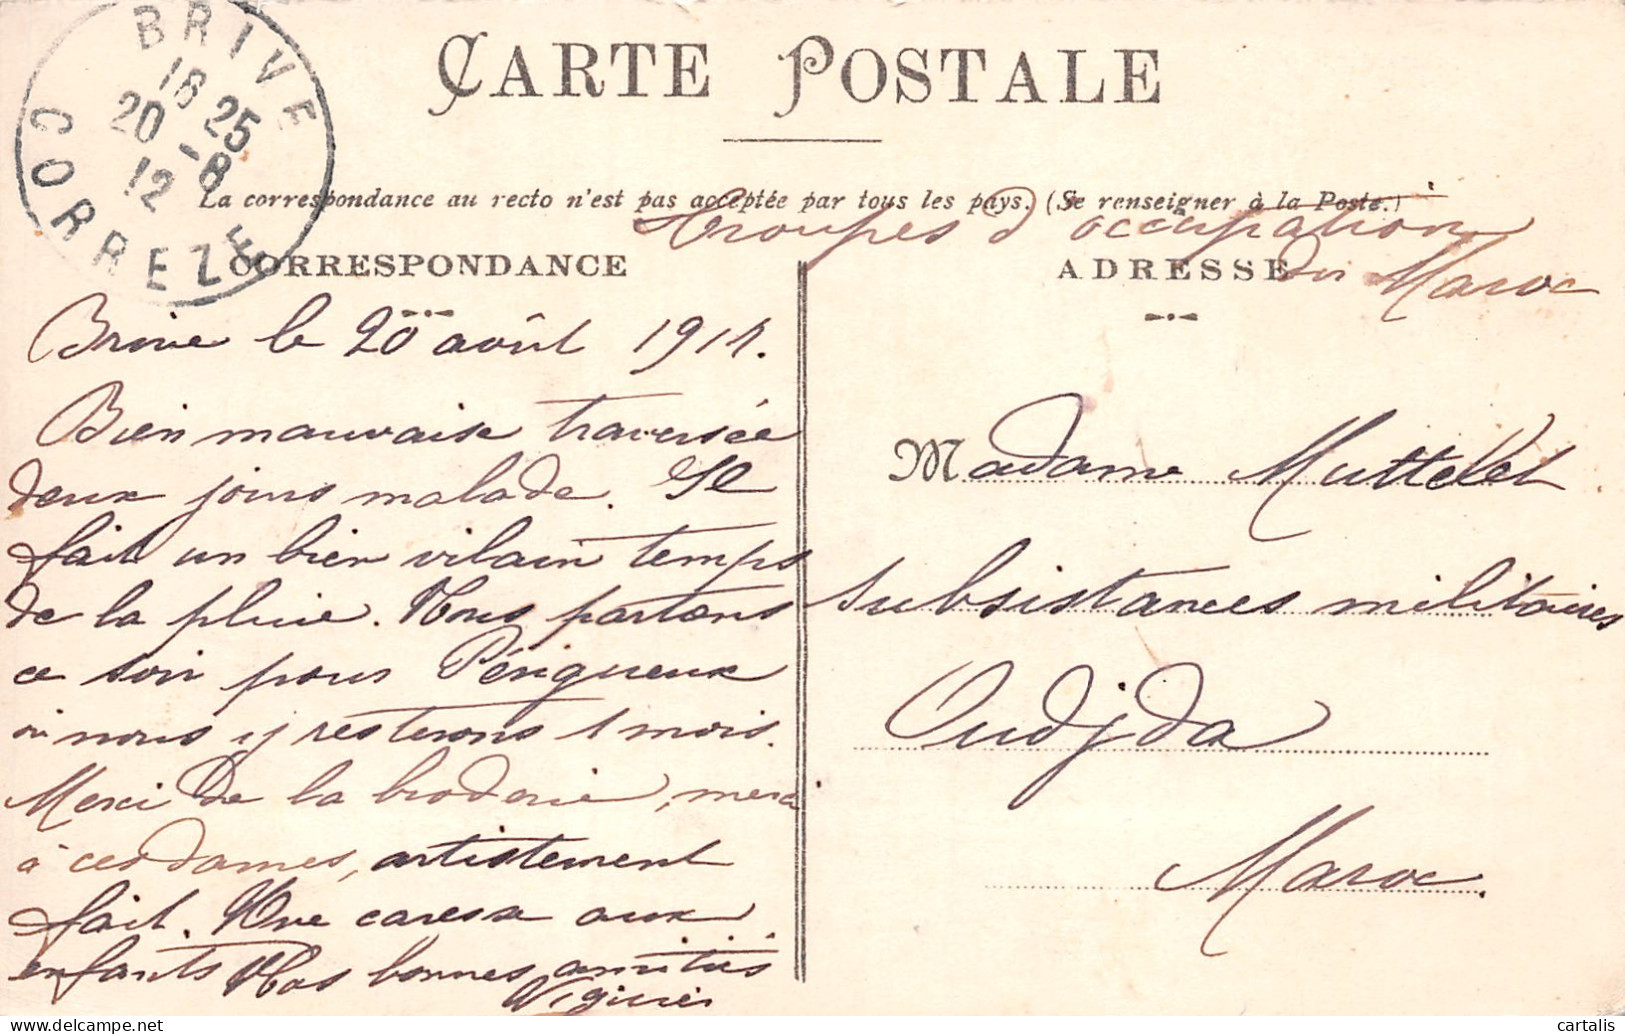 BRIVE
18 25
20 -8
12
CORREZE
CARTE POSTALE
La correspondance au recto n'est pas acceptée par tous les pays. (Se renseigner à la Poste.)
Troupes d'occupation
du Maroc
CORRESPONDANCE
ADRESSE
Brive le 20 août 1912.
Bien mauvaise traversée
deux jours malade. Il
fait un bien vilain temps
de la pluie. Nous partons
ce soir pour Périgueux
où nous y resterons 1 mois.
Merci de la broderie, merci
à ces dames, artistement
fait. Une caresse aux
enfants Nos bonnes amitiés
Viguier
Madame Muttelet
subsistances militaires
Oudjda
Maroc.
cartalis
www.delcampe.net